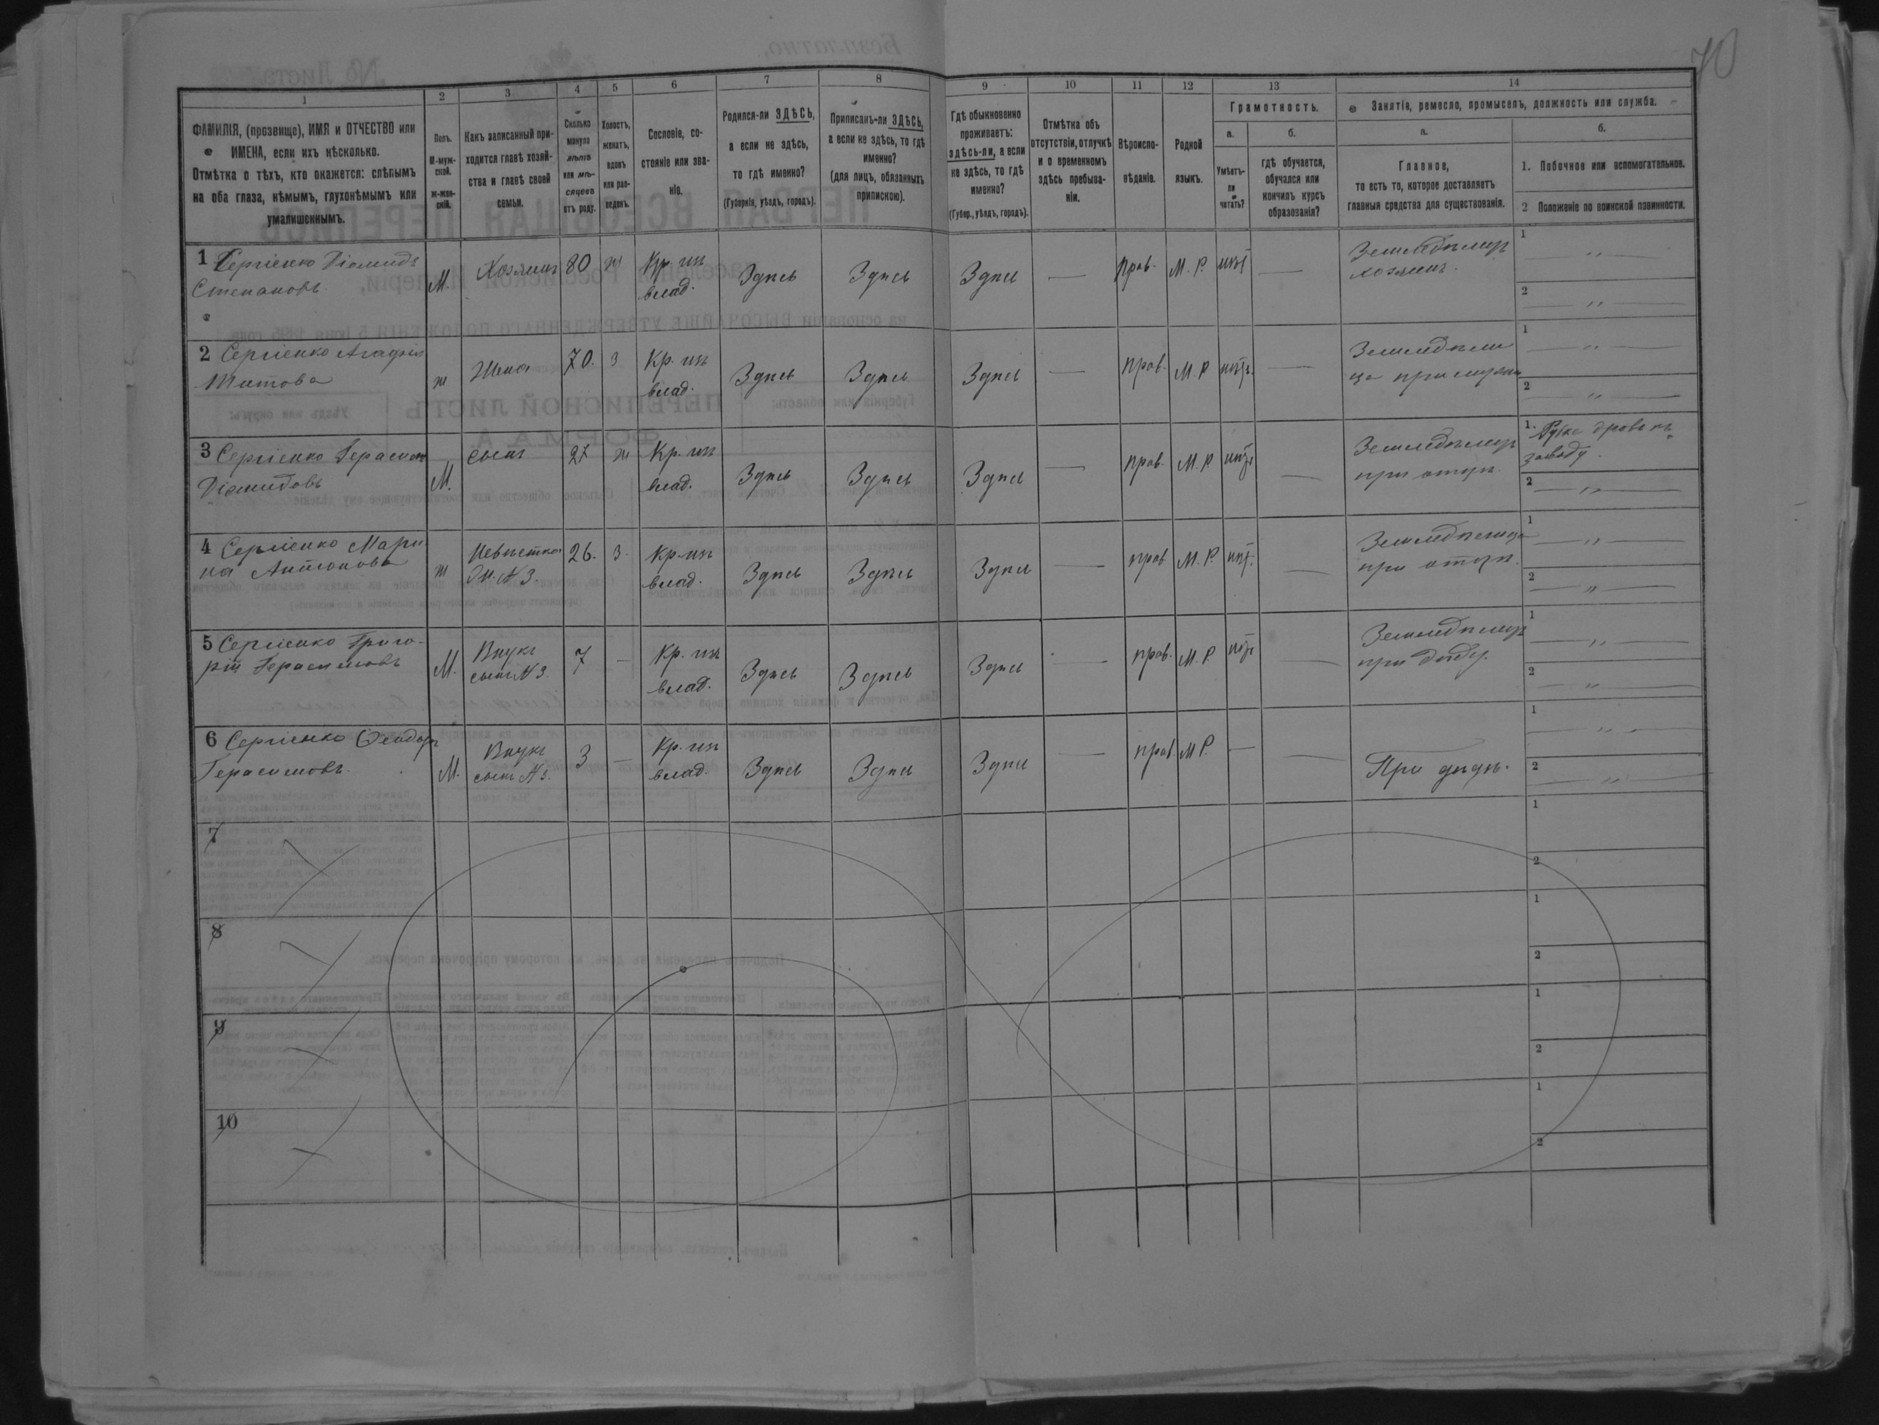 70
1 2 3 4 5 6 7 8 9 10 11 12 13 14
ФАМИЛІЯ, (прозвище), ИМЯ и ОТЧЕСТВО или
ИМЕНА, если ихъ нѣсколько.
Отмѣтка о тѣхъ, кто окажется: слѣпымъ
на оба глаза, нѣмымъ, глухонѣмымъ или
умалишеннымъ.
Полъ.
М-муж-
ской.
ж-жен-
скій.
Какъ записанный при-
ходится главѣ хозяй-
ства и главѣ своей
семьи.
Сколько
минуло
лѣтъ
или мѣ-
сяцевъ
отъ роду.
Холостъ,
женатъ,
вдовъ
или раз-
веденъ.
Сословіе, со-
стояніе или зва-
ніе.
Родился-ли ЗДѢСЬ,
а если не здѣсь,
то гдѣ именно?
(Губернія, уѣздъ, городъ).
Приписанъ-ли ЗДѢСЬ,
а если не здѣсь, то гдѣ
именно?
(для лицъ, обязанныхъ
припискою).
Гдѣ обыкновенно
проживаетъ:
здѣсь-ли, а если
не здѣсь, то гдѣ
именно?
(Губер., уѣздъ, городъ).
Отмѣтка объ
отсутствіи, отлучкѣ
и о временномъ
здѣсь пребыва-
ніи.
Вѣроиспо-
вѣданіе.
Родной
языкъ.
Грамотность.
а.
Умѣетъ-
ли
читать?
б.
гдѣ обучается,
обучался или
кончилъ курсъ
образованія?
Занятія, ремесло, промыселъ, должность или служба.
а.
Главное,
то есть то, которое доставляетъ
главныя средства для существованія.
б.
1. Побочное или вспомогательное.
2 Положеніе по воинской повинности.
1 Сергіенко Діомидъ
Степановъ
М. Хозяинъ 80 ж Кр. из
влад. Здѣсь Здѣсь Здѣсь — Прав. М. Р. нѣт —
Земледѣлец
хозяинъ.
1 — „ —
2 — „ —
2 Сергіенко Агафія
Титова
ж Жена 70. з Кр. из
влад. Здѣсь Здѣсь Здѣсь — Прав. М. Р нѣт. —
1 — „ —
2 — „ —
3 Сергіенко Герасим
Діомидовъ
М. сынъ 27 ж Кр. из
влад. Здѣсь Здѣсь Здѣсь — прав. М. Р нѣт —
Земледѣлец
при отцѣ.
1. дровъ къ
заводу.
2 — „ —
4 Сергіенко Мари
на Антонова
ж Невѣстка
Ж. N 3. 26. з. Кр. из
влад. Здѣсь Здѣсь Здѣсь — прав М. Р. нѣт. —
Земледѣлица
при отцѣ.
1 — „ —
2 — „ —
5 Сергіенко Григо-
рій Герасимовъ
М. Внукъ
сынъ N 3. 7 — Кр. из
влад. Здѣсь Здѣсь Здѣсь — прав. М. Р. нѣт —
Земледѣлец
при дѣду.
1 — „ —
2 — „ —
6 Сергіенко Ѳеодоръ
Герасимовъ.
М. Внукъ
сынъ N 3. 3 — Кр. из
влад. Здѣсь Здѣсь Здѣсь — прав М Р. — —
При дѣдѣ.
1 — „ —
2 — „ —
7
1
2
8
1
2
9
1
2
10
1
2